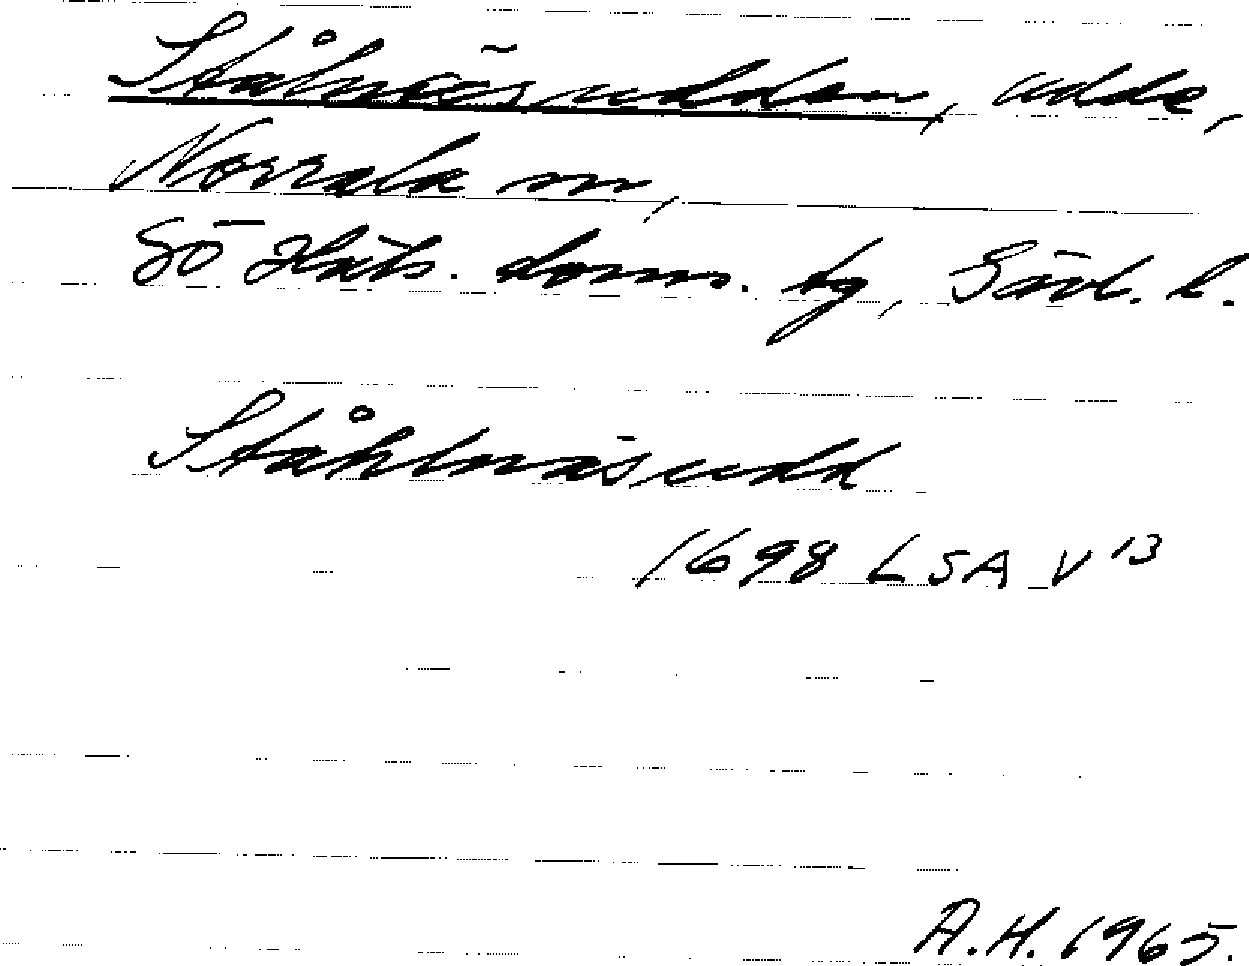 Stålnäsudden, udde,
Norrala sn,
Sö Häls. doms. tg, Gävl. l.
Ståhlnäsudd
1698 LSA V 13
A.H. 1965.